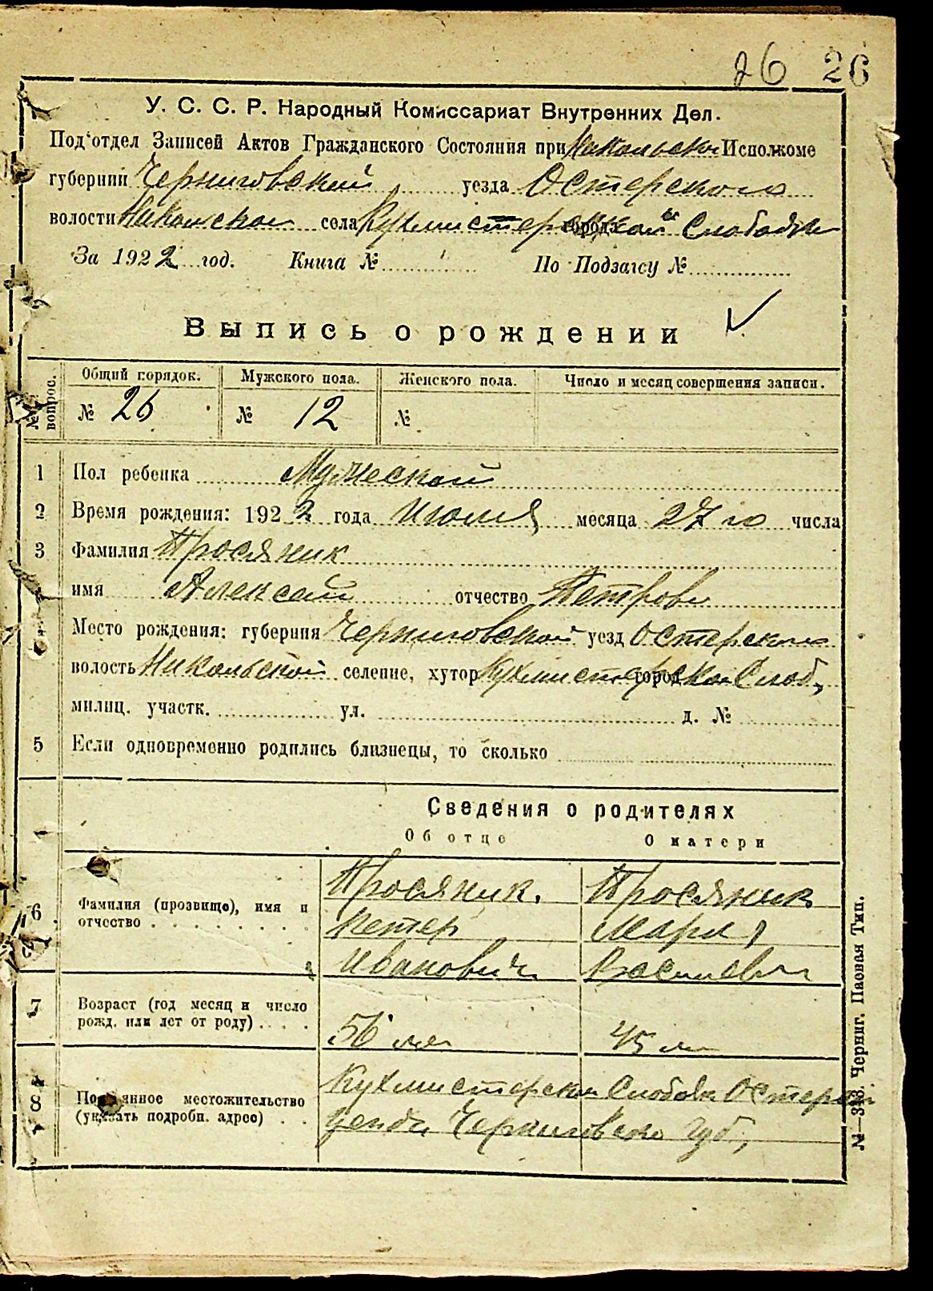 26 26
У. С. С. Р. Народный Комиссариат Внутренних Дел.
Под'отдел Записей Актов Гражданского Состояния при Никольском Исполкоме
губернии Черниговской уезда Остерского
волости Никольской села Кухмистерской города Слободки
За 1922 год. Книга № По Подзагсу №
Выпись о рождении
№ вопрос. Общий порядок. Мужского пола. Женского пола. Число и месяц совершения записи.
№ 26 № 12 №
1 Пол ребенка Мужеской
2 Время рождения: 1922 года Июля месяца 27 го числа
3 Фамилия Просяник
имя Алексей отчество Петров
Место рождения: губерния Черниговской уезд Остерского
волость Никольской селение, хутор Кухмистерской город Слоб,
милиц. участк. ул. д. №
5 Если одновременно родились близнецы, то сколько
Сведения о родителях
Об отце О матери
Просяник. Просяник
6 Фамилия (прозвище), имя и отчество Петер Мария
Иванович Васильевн
7 Возраст (год месяц и число рожд. или лет от роду) 56 лет 45 л
8 Постоянное местожительство (указать подробн. адрес) Кухмистерской Слободк Остерск
уезда Черниговско губ,
№—313. Черниг. Паовая Тип.